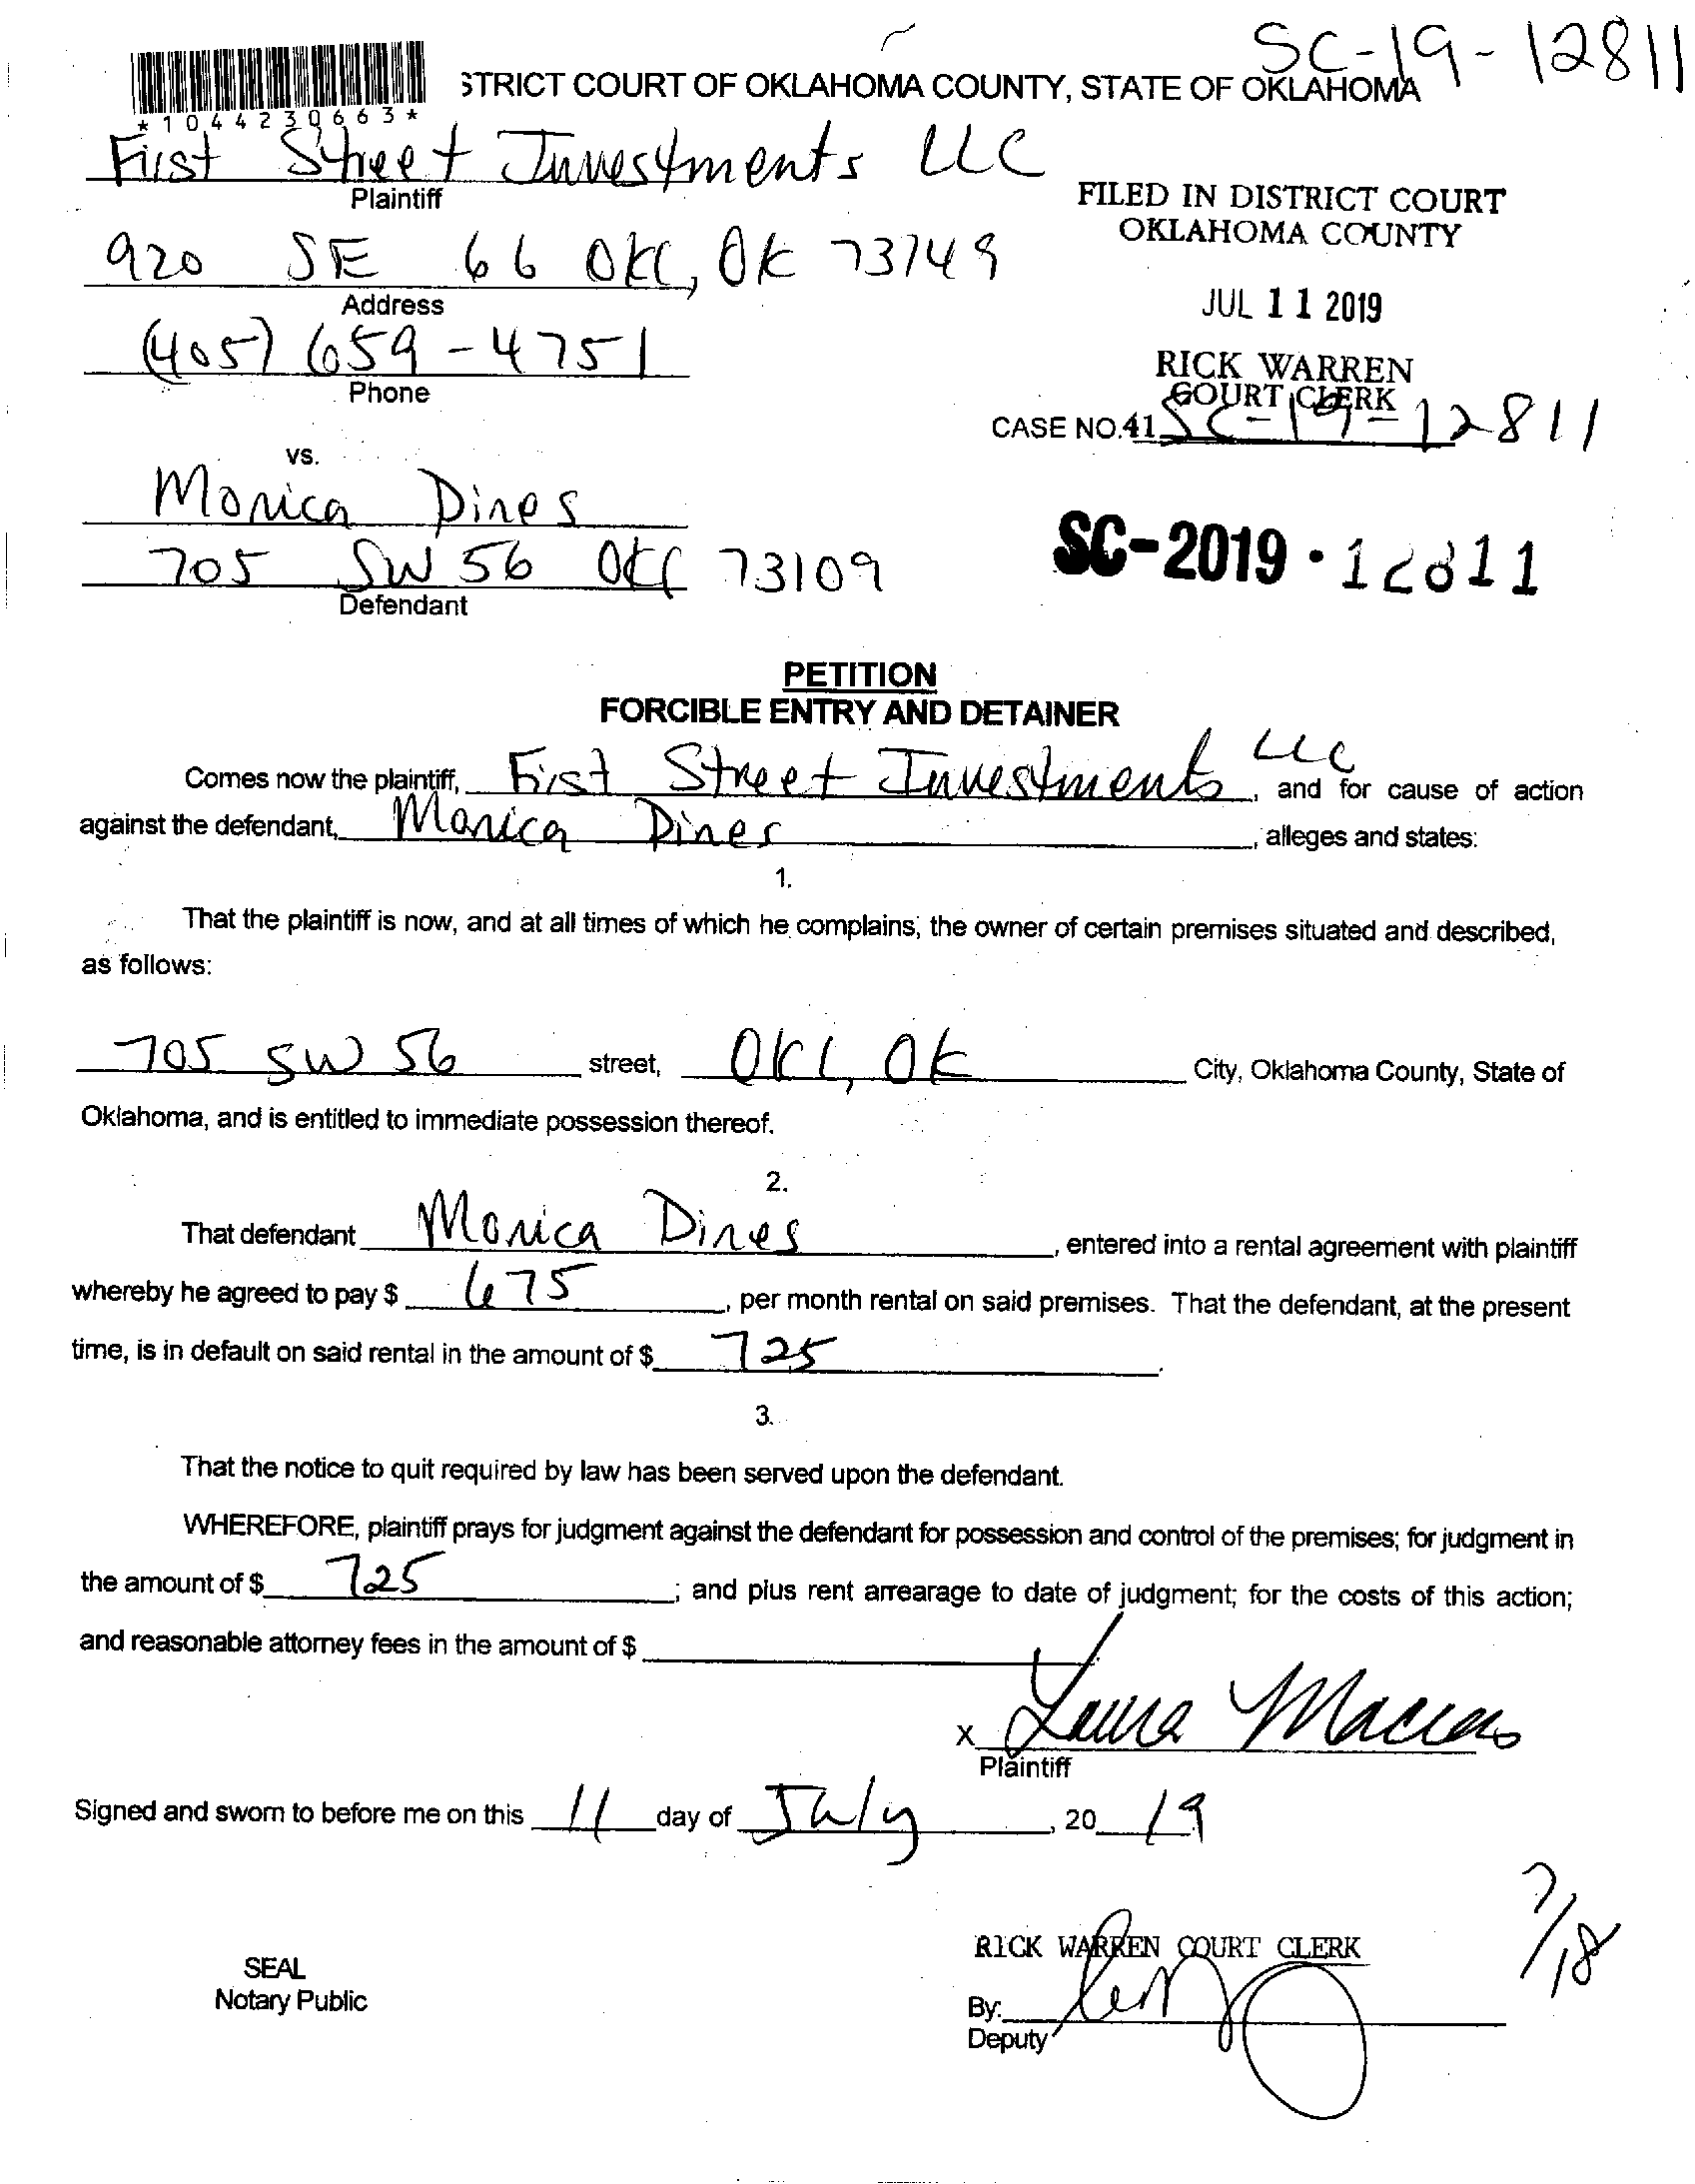 SC-19-12811
STRICT COURT OF OKLAHOMA COUNTY, STATE OF OKLAHOMA
*1044230663*
First Street Investments LLC
Plaintiff
920 SE 66 OKC, OK 73149
Address
(405) 659-4751
Phone
FILED IN DISTRICT COURT
OKLAHOMA COUNTY
JUL 11 2019
RICK WARREN
COURT CLERK
CASE NO.41 SC-19-12811
vs.
Monica Dines
705 SW 56 OKC 73109
Defendant
SC-2019-12811
PETITION
FORCIBLE ENTRY AND DETAINER
Comes now the plaintiff, First Street Investments LLC, and for cause of action
against the defendant, Monica Dines, alleges and states:
1.
That the plaintiff is now, and at all times of which he complains, the owner of certain premises situated and described,
as follows:
705 SW 56 street, OKC, OK City, Oklahoma County, State of
Oklahoma, and is entitled to immediate possession thereof.
2.
That defendant Monica Dines, entered into a rental agreement with plaintiff
whereby he agreed to pay $ 675, per month rental on said premises. That the defendant, at the present
time, is in default on said rental in the amount of $ 725.
3.
That the notice to quit required by law has been served upon the defendant.
WHEREFORE, plaintiff prays for judgment against the defendant for possession and control of the premises; for judgment in
the amount of $ 725; and plus rent arrearage to date of judgment; for the costs of this action;
and reasonable attorney fees in the amount of $
x Laura Macias
Plaintiff
Signed and sworn to before me on this 11 day of July, 2019
7/18
RICK WARREN COURT CLERK
SEAL
Notary Public
By:
Deputy